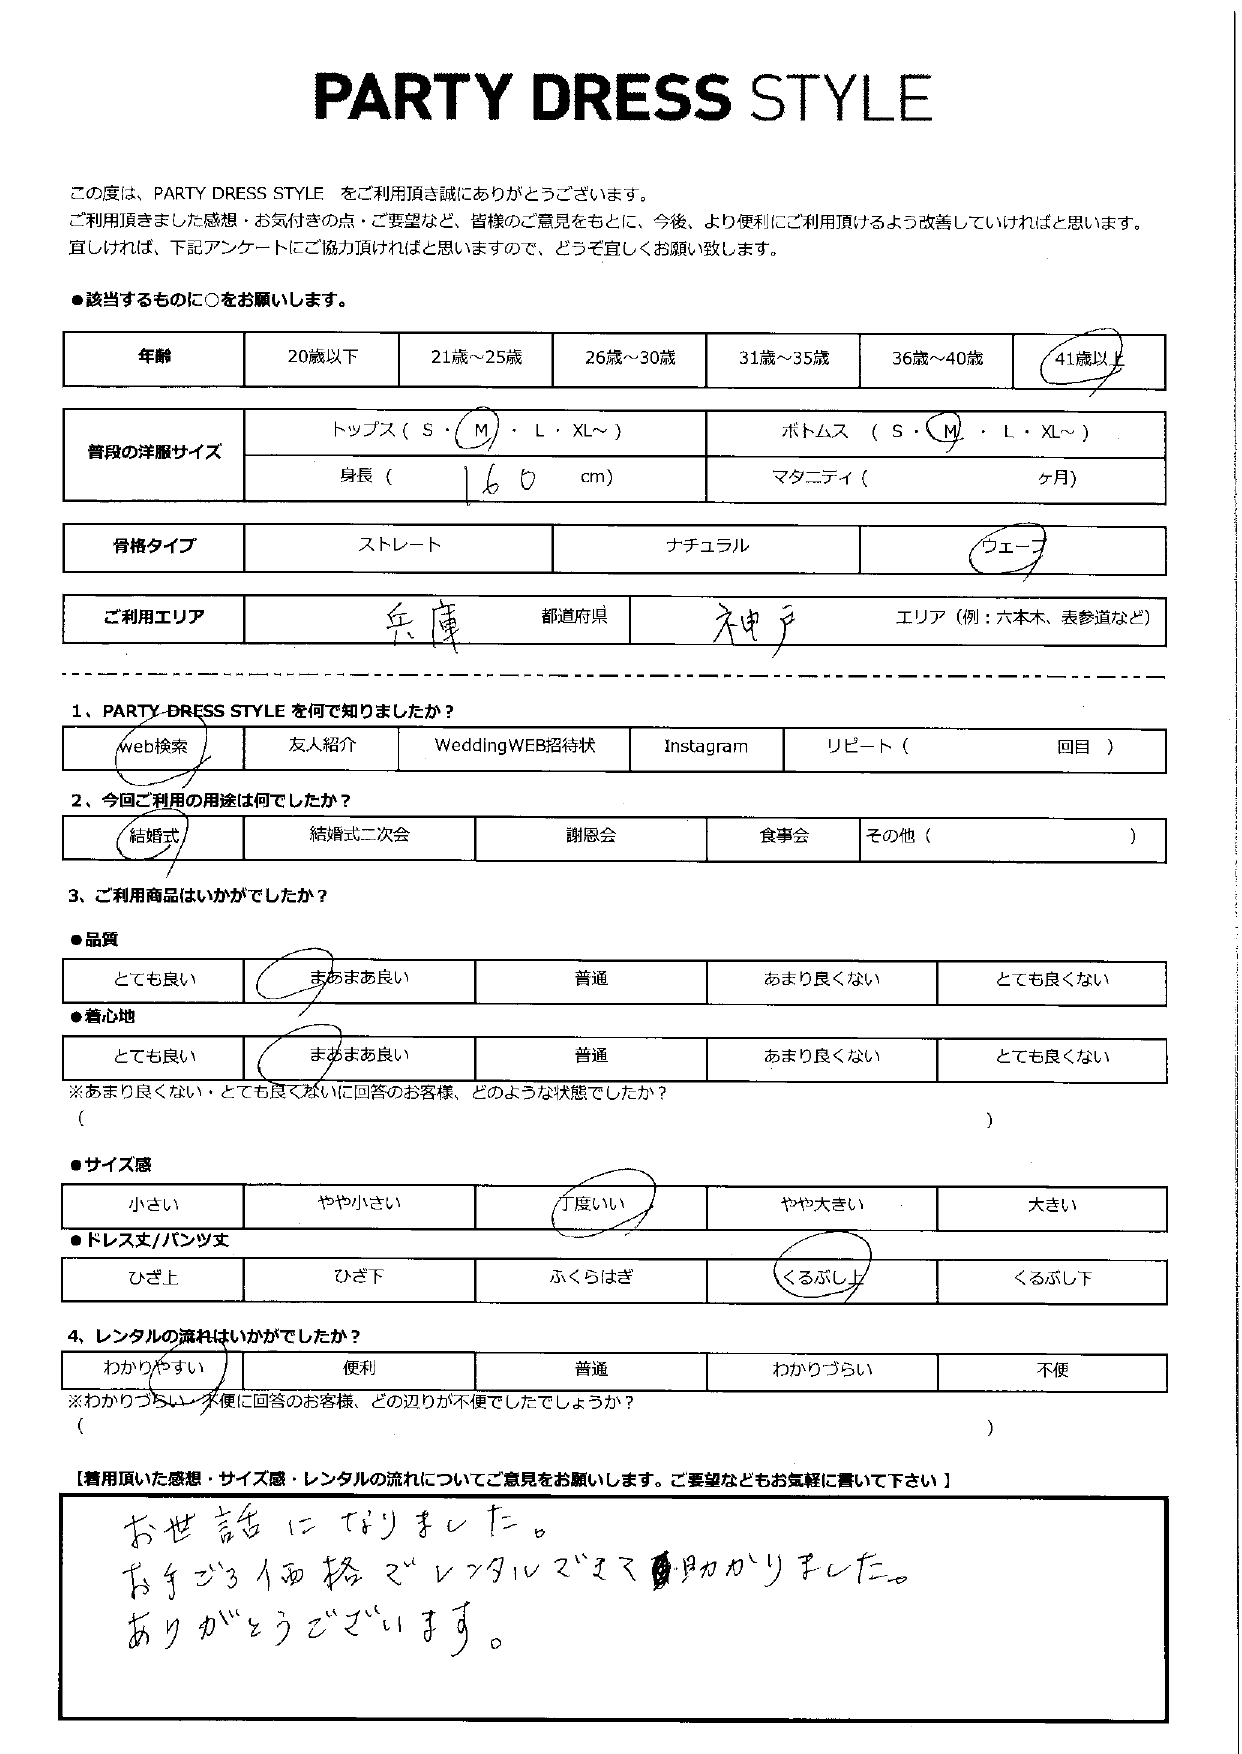 PARTY DRESS STYLE
この度は、PARTY DRESS STYLE をご利用頂き誠にありがとうございます。
ご利用頂きました感想・お気付きの点・ご要望など、皆様のご意見をもとに、今後、より便利にご利用頂けるよう改善していければと思います。
宜しければ、下記アンケートにご協力頂ければと思いますので、どうぞ宜しくお願い致します。
●該当するものに○をお願いします。
年齢 20歳以下 21歳～25歳 26歳～30歳 31歳～35歳 36歳～40歳 41歳以上
普段の洋服サイズ トップス ( S ・ M ・ L ・ XL～ ) ボトムス ( S ・ M ・ L ・ XL～ )
身長 ( 160 cm) マタニティ ( ヶ月)
骨格タイプ ストレート ナチュラル ウェーブ
ご利用エリア 兵庫 都道府県 神戸 エリア（例：六本木、表参道など）
1、PARTY DRESS STYLE を何で知りましたか？
web検索 友人紹介 WeddingWEB招待状 Instagram リピート ( 回目 )
2、今回ご利用の用途は何でしたか？
結婚式 結婚式二次会 謝恩会 食事会 その他 ( )
3、ご利用商品はいかがでしたか？
●品質
とても良い まあまあ良い 普通 あまり良くない とても良くない
●着心地
とても良い まあまあ良い 普通 あまり良くない とても良くない
※あまり良くない・とても良くないに回答のお客様、どのような状態でしたか？
( )
●サイズ感
小さい やや小さい 丁度いい やや大きい 大きい
●ドレス丈/パンツ丈
ひざ上 ひざ下 ふくらはぎ くるぶし上 くるぶし下
4、レンタルの流れはいかがでしたか？
わかりやすい 便利 普通 わかりづらい 不便
※わかりづらい・不便に回答のお客様、どの辺りが不便でしたでしょうか？
( )
【着用頂いた感想・サイズ感・レンタルの流れについてご意見をお願いします。ご要望などもお気軽に書いて下さい 】
お世話になりました。
お手ごろ価格でレンタルできて助かりました。
ありがとうございます。